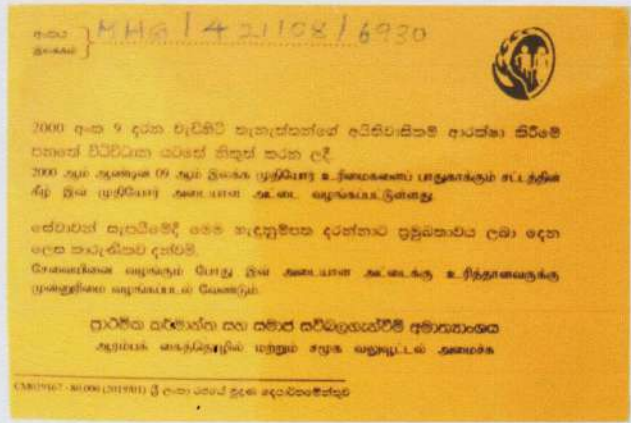 අංකය
இலக்கம் } MHG / 421/08/6930
2000 අංක 9 දරන වැඩිහිටි තැනැත්තන්ගේ අයිතිවාසිකම් ආරක්ෂා කිරීමේ
පනතේ විධිවිධාන යටතේ නිකුත් කරන ලදී.
2000 ஆம் ஆண்டின் 09 ஆம் இலக்க முதியோர் உரிமைகளைப் பாதுகாக்கும் சட்டத்தின்
கீழ் இவ் முதியோர் அடையாள அட்டை வழங்கப்பட்டுள்ளது.
සේවාවන් සැපයීමේදී මෙම හැඳුනුම්පත දරන්නාට ප්‍රමුඛතාවය ලබා දෙන
ලෙස කාරුණිකව දන්වමි.
சேவையினை வழங்கும் போது இவ் அடையாள அட்டைக்கு உரித்தானவருக்கு
முன்னுரிமை வழங்கப்படல் வேண்டும்.
ප්‍රාථමික කර්මාන්ත සහ සමාජ සවිබලගැන්වීම් අමාත්‍යාංශය
ஆரம்பக் கைத்தொழில் மற்றும் சமூக வலுவூட்டல் அமைச்சு
CM029167 - 80,000 (2019/01) ශ්‍රී ලංකා රජයේ මුද්‍රණ දෙපාර්තමේන්තුව